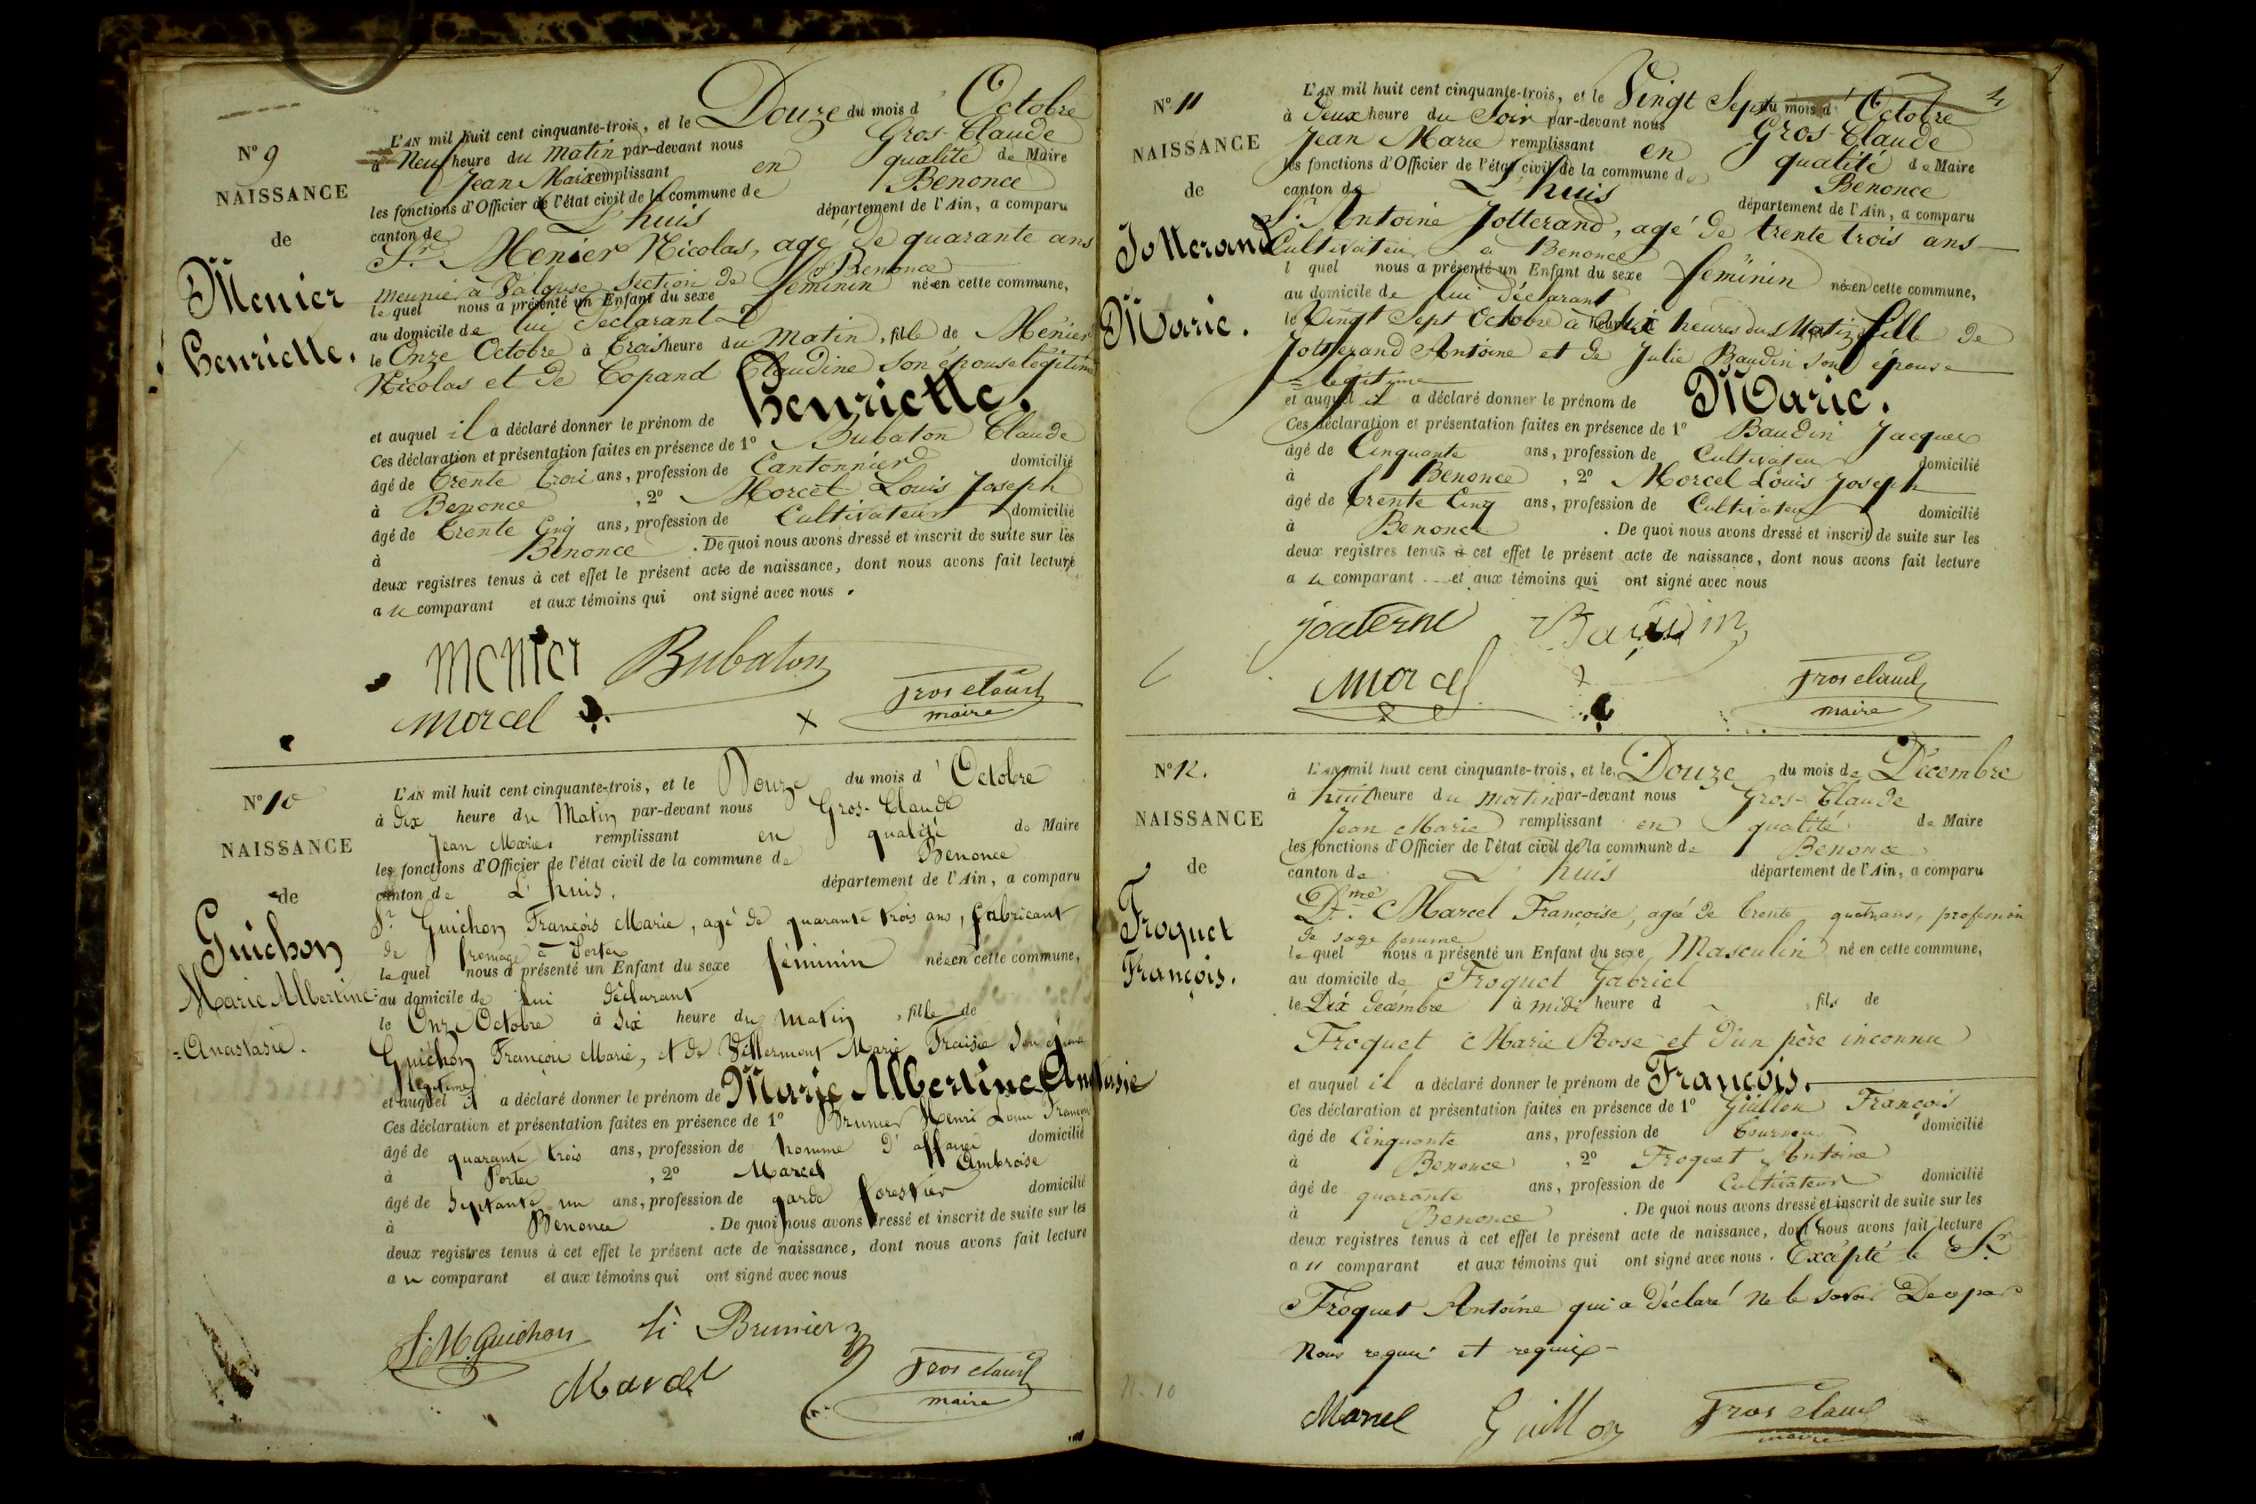 N° 9
NAISSANCE
de
Menier
Henriette.
L'AN mil huit cent cinquante-trois, et le Douze du mois d'Octobre
à Neuf heure du Matin par-devant nous Gros-Claude
Jean Marie remplissant en qualité de Maire
les fonctions d'Officier de l'état civil de la commune de Benonce
canton de L'huis département de l'Ain, a comparu
Sr. Menier Nicolas, agé de quarante ans
meunié à Valouse Section de Benonce
lequel nous a présenté un Enfant du sexe féminin né en cette commune,
au domicile de lui déclarant
le Onze Octobre à Trois heure du matin, fille de Menier
Nicolas et de Copand Claudine son épouse légitime
et auquel il a déclaré donner le prénom de Henriette.
Ces déclaration et présentation faites en présence de 1° Bubaton Claude
âgé de trente trois ans, profession de Cantonnier domicilié
à Benonce, 2° Morcel Louis Joseph
âgé de trente Cinq ans, profession de Cultivateur domicilié
à Benonce. De quoi nous avons dressé et inscrit de suite sur les
deux registres tenus à cet effet le présent acte de naissance, dont nous avons fait lecture
a u comparant et aux témoins qui ont signé avec nous.
menier Bubaton
morcel Gros claude
maire
N° 10
NAISSANCE
de
Guichon
Marie Albertine
=Anastasie.
L'AN mil huit cent cinquante-trois, et le Douze du mois d'Octobre
à dix heure du Matin par-devant nous Gros-Claude
Jean Marie remplissant en qualité de Maire
les fonctions d'Officier de l'état civil de la commune de Benonce
canton de L'huis. département de l'Ain, a comparu
Sr. Guichon François Marie, agé de quarante trois ans, fabricant
de fromage à Portes
lequel nous a présenté un Enfant du sexe féminin née en cette commune,
au domicile de lui déclarant
le Onze Octobre à Six heure du matin, fille de
Guichon François Marie, et de Villermont Marie son épouse
légitime
et auquel il a déclaré donner le prénom de Marie Albertine Anastasie
Ces déclaration et présentation faites en présence de 1° Brunier Henri Louis François
âgé de quarante trois ans, profession de homme d'affaires domicilié
à Portes, 2° Marcel Ambroise
âgé de Septante un ans, profession de garde forestier domicilié
à Benonce. De quoi nous avons dressé et inscrit de suite sur les
deux registres tenus à cet effet le présent acte de naissance, dont nous avons fait lecture
a u comparant et aux témoins qui ont signé avec nous
f. M. Guichon Brunier
Marcel Gros claude
maire
4
N° 11
NAISSANCE
de
Jotterand
Marie.
L'AN mil huit cent cinquante-trois, et le Vingt Sept du mois d'Octobre
à Deux heure du Soir par-devant nous Gros-Claude
Jean Marie remplissant en qualité de Maire
les fonctions d'Officier de l'état civil de la commune de Benonce
canton de L'huis département de l'Ain, a comparu
Sr. Antoine Jotterand, agé de trente trois ans
Cultivateur à Benonce
l quel nous a présenté un Enfant du sexe féminin né en cette commune,
au domicile de lui déclarant
le Vingt Sept Octobre à heures du Matin fille de
Jotterand Antoine et de Julie Baudin son épouse
=légitime
et auquel il a déclaré donner le prénom de Marie.
Ces déclaration et présentation faites en présence de 1° Baudin Jacques
âgé de Cinquante ans, profession de Cultivateur domicilié
à Benonce, 2° Morcel Louis Joseph
âgé de trente Cinq ans, profession de Cultivateur domicilié
à Benonce. De quoi nous avons dressé et inscrit de suite sur les
deux registres tenus à cet effet le présent acte de naissance, dont nous avons fait lecture
a u comparant et aux témoins qui ont signé avec nous
Baudin
morcel Gros claude
maire
N° 12.
NAISSANCE
de
Froquet
François.
L'AN mil huit cent cinquante-trois, et le Douze du mois de Décembre
à huit heure du matin par-devant nous Gros-Claude
Jean Marie remplissant en qualité de Maire
les fonctions d'Officier de l'état civil de la commune de Benonce
canton de L'huis département de l'Ain, a comparu
Dme. Marcel Françoise, agée de trente quatre ans, profession
de sage femme
lequel nous a présenté un Enfant du sexe Masculin né en cette commune,
au domicile de Froquet Gabriel
le Dix décembre à midi heure d , fils de
Froquet Marie Rose et d'un père inconnu
et auquel il a déclaré donner le prénom de François.
Ces déclaration et présentation faites en présence de 1° Guillon François
âgé de Cinquante ans, profession de tourneur domicilié
à Benonce, 2° Froquet Antoine
âgé de quarante ans, profession de Cultivateur domicilié
à Benonce. De quoi nous avons dressé et inscrit de suite sur les
deux registres tenus à cet effet le présent acte de naissance, dont nous avons fait lecture
a u comparant et aux témoins qui ont signé avec nous. Excepté le Sr
Froquet Antoine qui a déclaré ne le savoir De ce par
nous requi et requis
Marcel Guillon Gros claude
maire